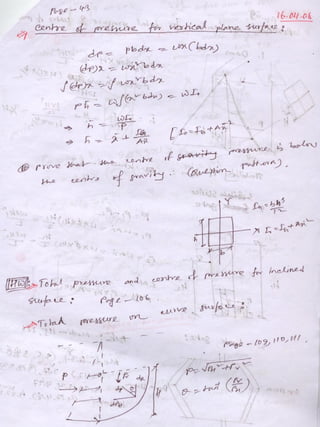 Page - 43
16.04.06
Centre of pressure for vertical plane surface:
dp = pbdx = wx(bdx)
(dp)x = wx²bdx
∫(dp)x = ∫wx²bdx
ph̄ = w∫(x²bdx) = wI₀
⇒ h̄ = wI₀/P
⇒ h̄ = x̄ + IG/Ax̄ [I₀ = IG + Ax̄²]
Prove that the centre of gravity pressure is below
the centre of gravity. (Question pattern).
IG = bh³/12
I₀ = IG + Ax̄²
H.W. → Total pressure and centre of pressure for inclined
surface: Page - 106
→ Total pressure on curve surface:
Page - 109, 110, 111.
P = √PH² + PV²